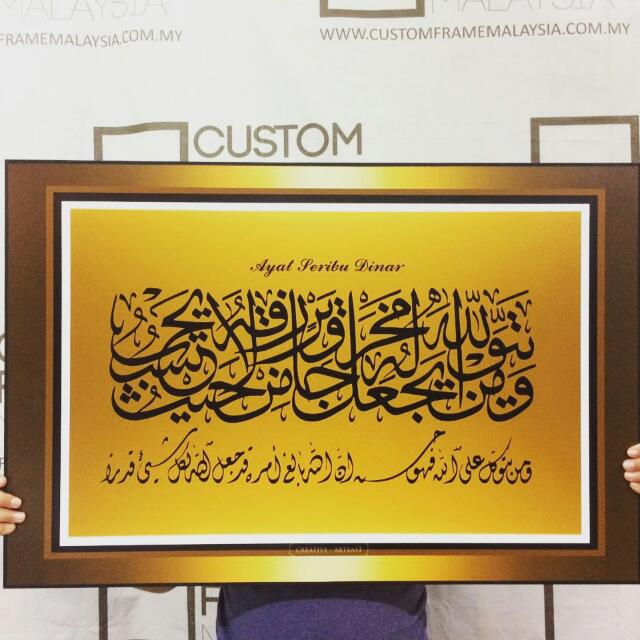 MALAYSIA
FRAMEMALAYSIA.COM.MY
WWW.CUSTOMFRAMEMALAYSIA.COM.MY
CUSTOM
Ayat Seribu Dinar
ومن يتق الله يجعل له مخرجا ويرزقه من حيث لا يحتسب
ومن يتوكل على الله فهو حسبه ان الله بالغ امره قد جعل الله لكل شيئ قدرا
CREATIVE : ARTEAST